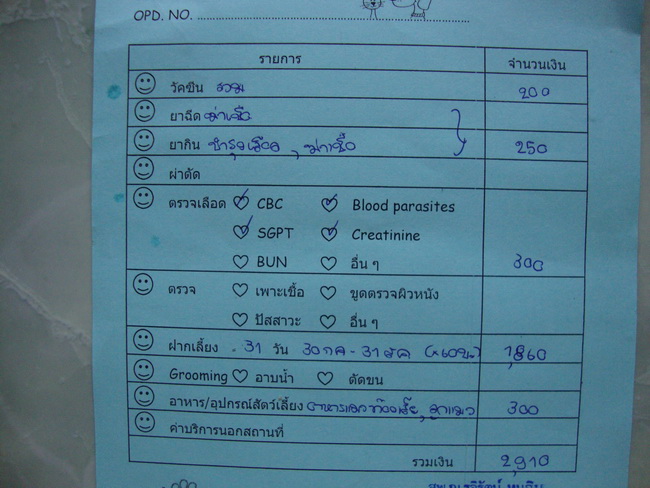 OPD. NO. ........................................................................
รายการ จำนวนเงิน
วัคซีน รวม 200
ยาฉีด ฆ่าเชื้อ
ยากิน บำรุงเลือด , ฆ่าเชื้อ 250
ผ่าตัด
ตรวจเลือด CBC Blood parasites
SGPT Creatinine
BUN อื่น ๆ 300
ตรวจ เพาะเชื้อ ขูดตรวจผิวหนัง
ปัสสาวะ อื่น ๆ
ฝากเลี้ยง 31 วัน 30 กค - 31 สค (x60บ.) 1,860
Grooming อาบน้ำ ตัดขน
อาหาร/อุปกรณ์สัตว์เลี้ยง ลูกแมว 300
ค่าบริการนอกสถานที่
รวมเงิน 2,910